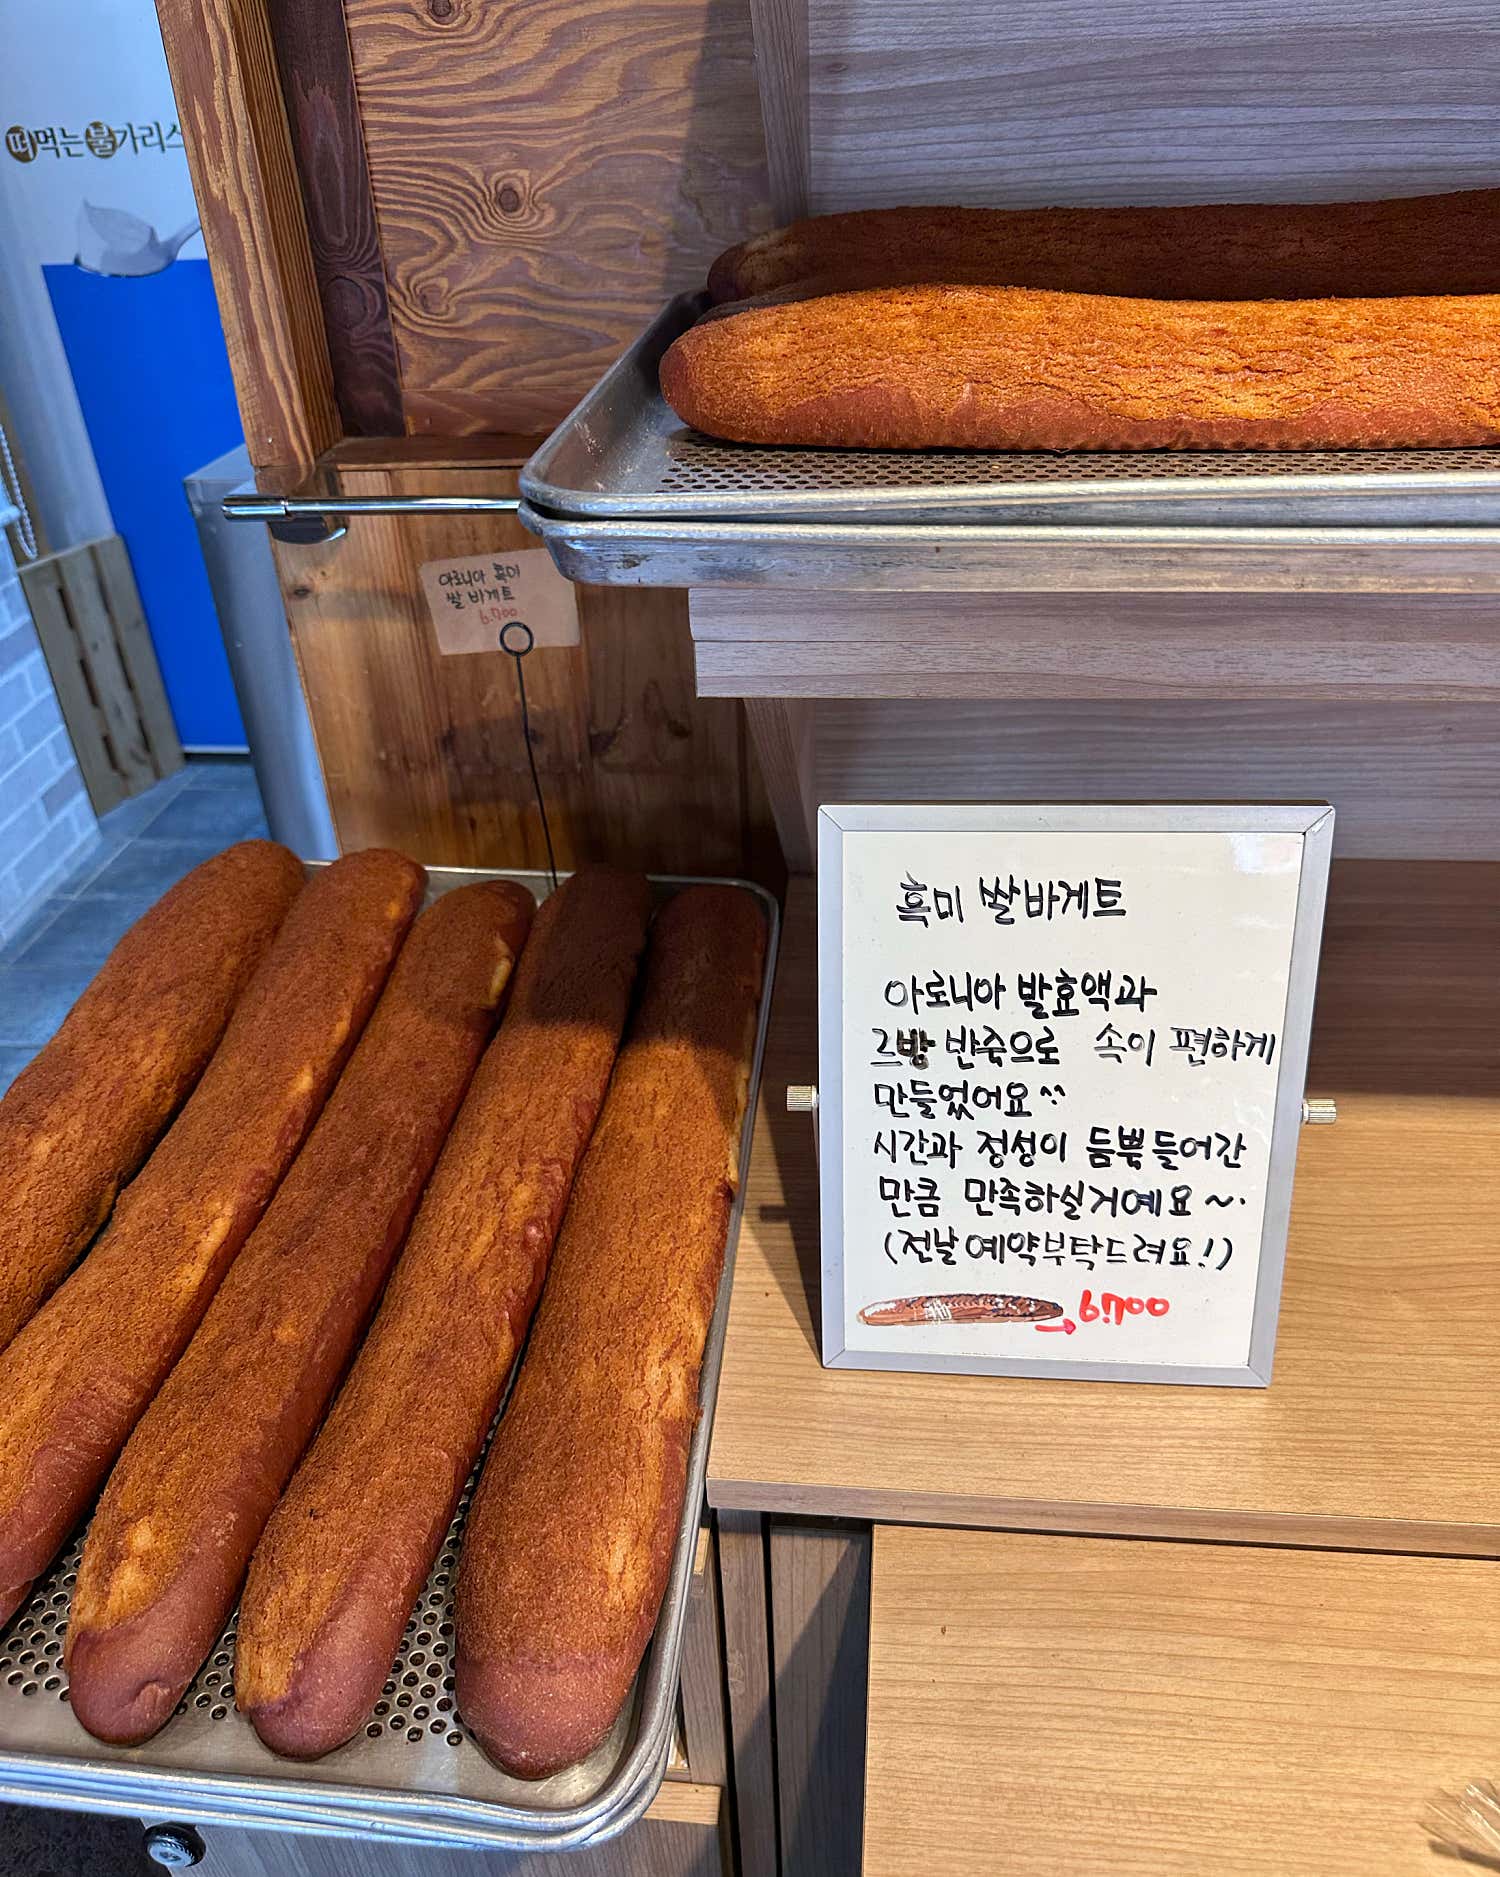 떠먹는불가리스
아로니아 흑미
쌀 바게트
6.700
흑미 쌀바게트
아로니아 발효액과
르방 반죽으로 속이 편하게
만들었어요^^
시간과 정성이 듬뿍들어간
만큼 만족하실거예요~.
(전날예약부탁드려요!)
→6.700